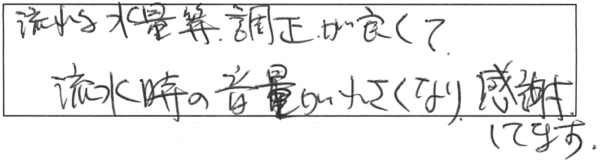 流れる水量等、調正が良くて、
流水時の音量が小さくなり、感謝
してます。